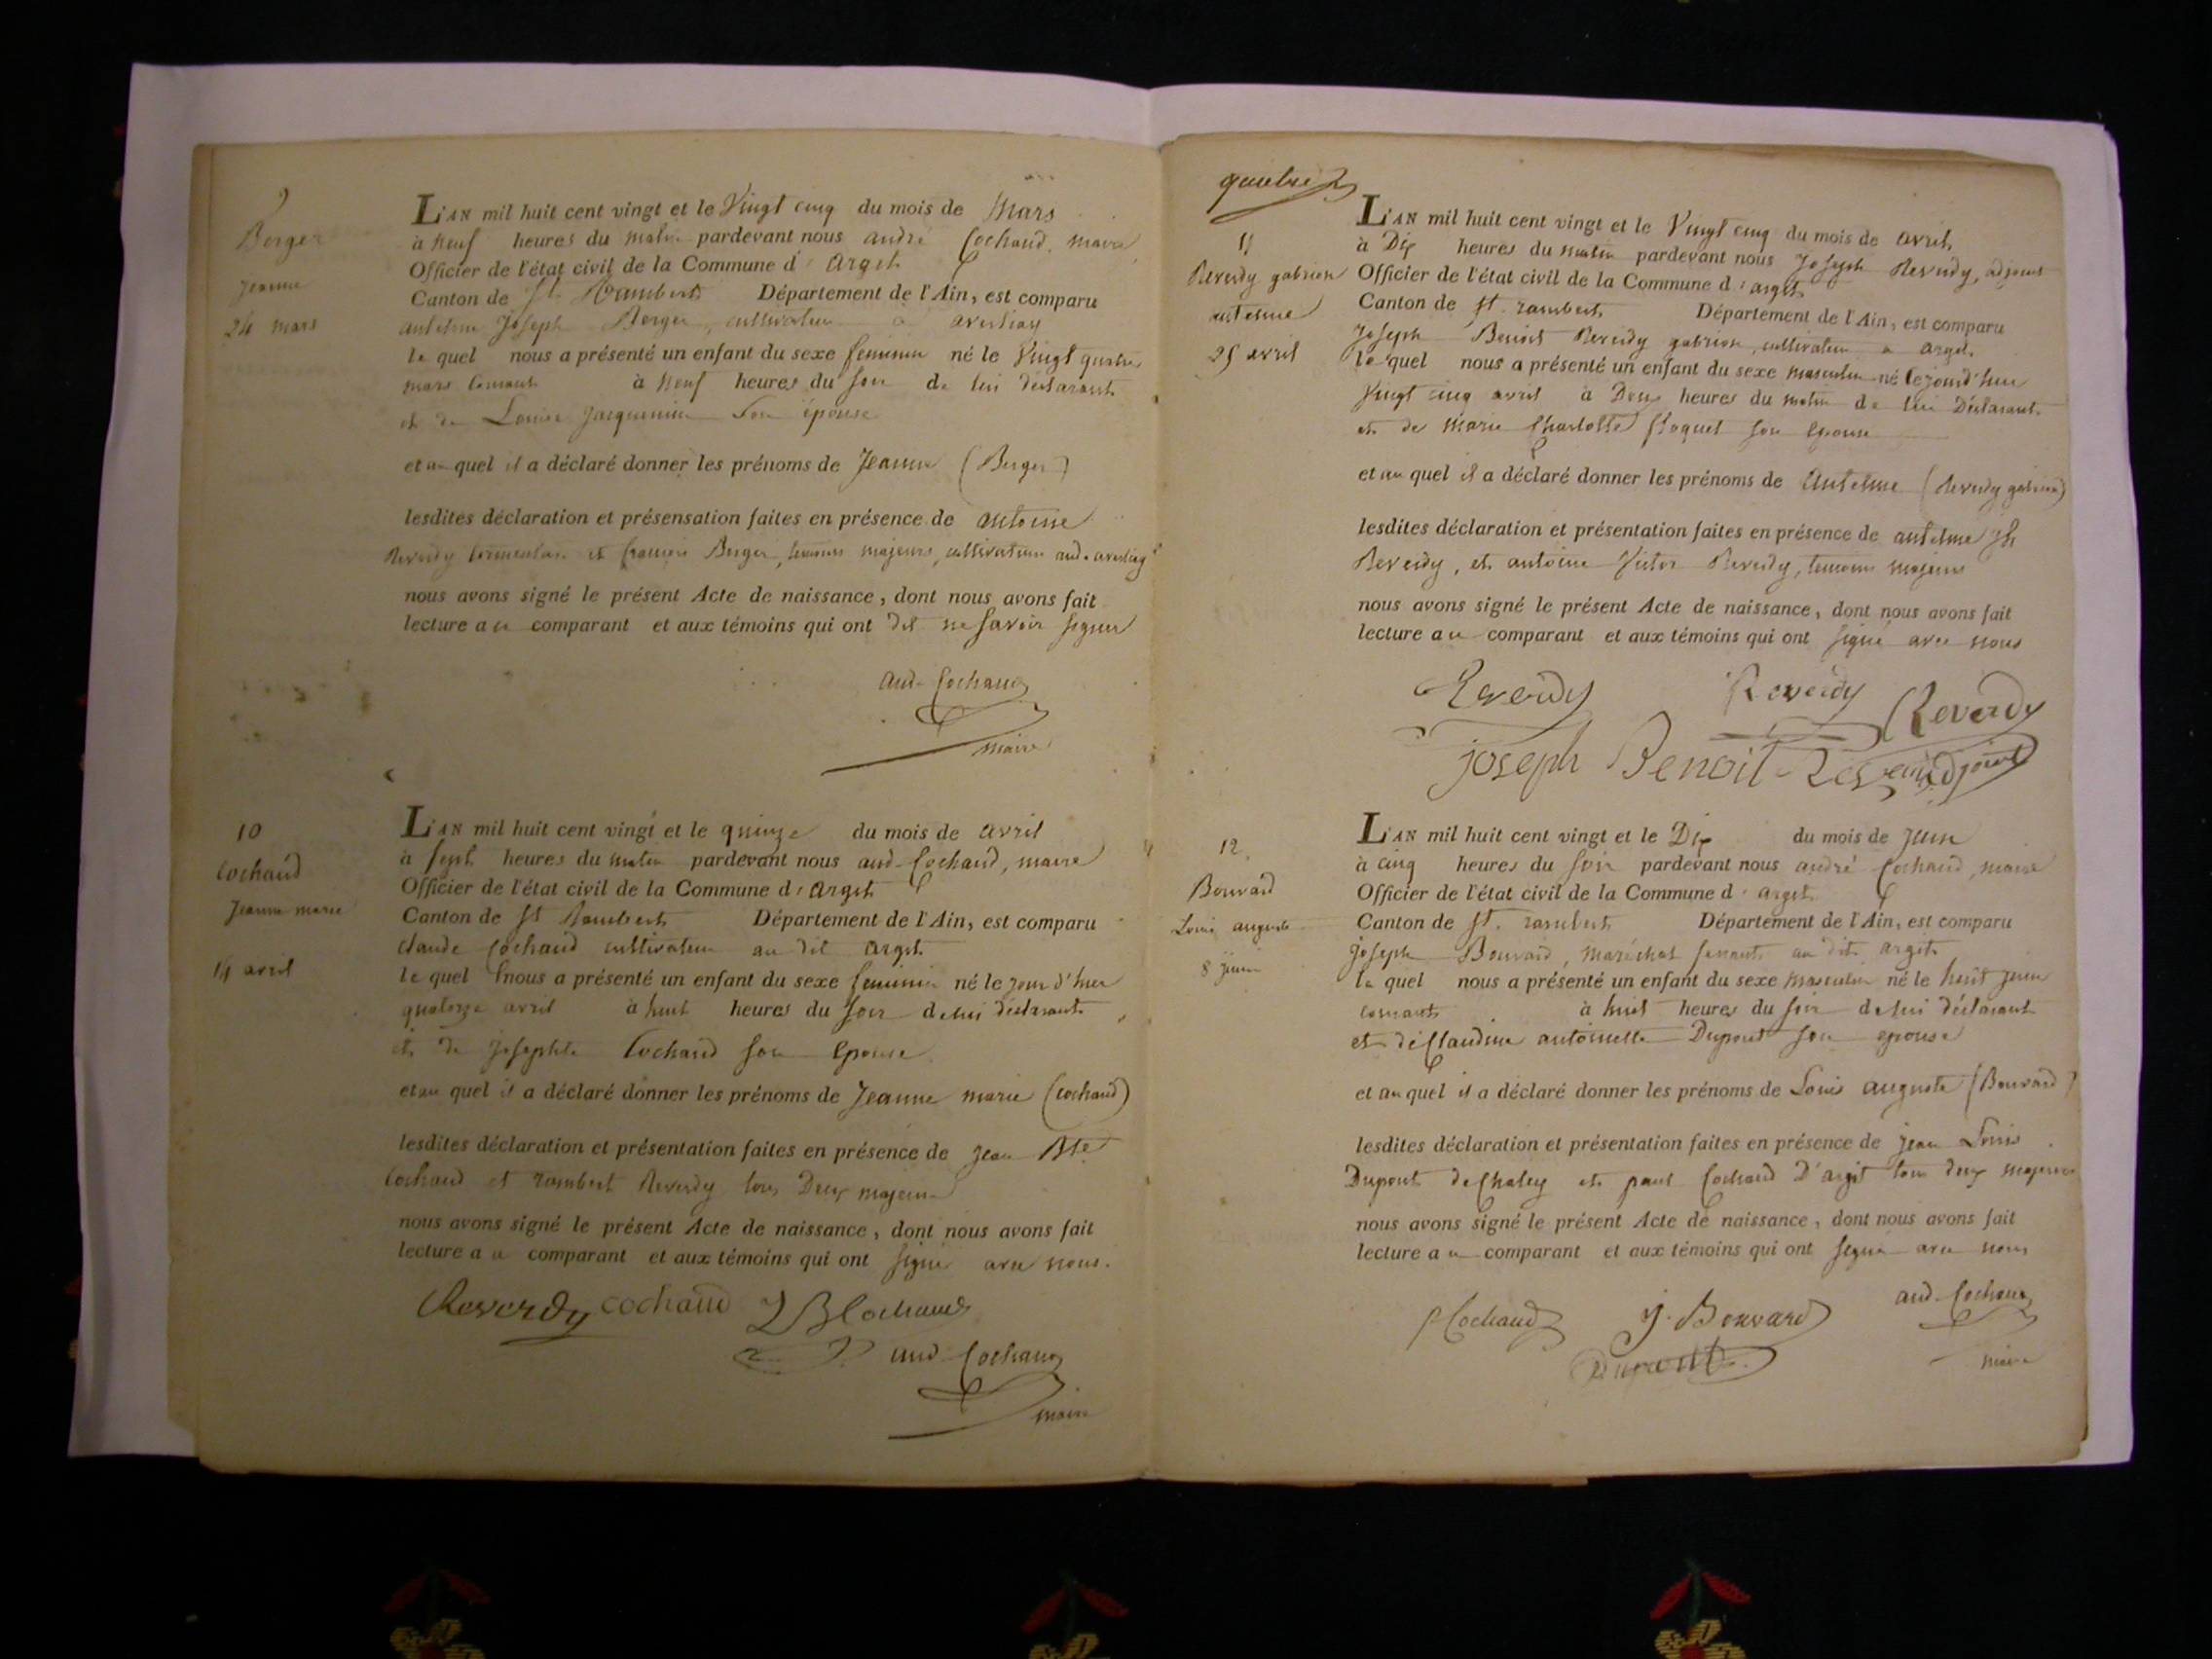 9
Berger
Jeanne
24 mars
L'AN mil huit cent vingt et le Vingt cinq du mois de Mars
à neuf heures du matin pardevant nous andré Cochaud, maire
Officier de l'état civil de la Commune d'argit
Canton de St Rambert Département de l'Ain, est comparu
antelme Joseph Berger, cultivateur a
le quel nous a présenté un enfant du sexe feminin né le Vingt quatre
mars courant à neuf heures du soir de lui déclarant
et de Louise Jacquemin son épouse
et au quel il a déclaré donner les prénoms de Jeanne (Berger)
lesdites déclaration et présensation faites en présence de antoine
Reverdy et françois Berger, temoins majeurs, cultivateurs
nous avons signé le présent Acte de naissance, dont nous avons fait
lecture au comparant et aux témoins qui ont dit ne savoir signer
and Cochaud
maire
10
Cochaud
Jeanne marie
14 avril
L'AN mil huit cent vingt et le quinze du mois de avril
à sept heures du matin pardevant nous and Cochaud, maire
Officier de l'état civil de la Commune d'argit
Canton de St Rambert Département de l'Ain, est comparu
claude Cochaud cultivateur au dit argit
le quel nous a présenté un enfant du sexe feminin né le jour d'hier
quatorze avril à huit heures du soir de lui déclarant
et de Josephte Cochaud son epouse
et au quel il a déclaré donner les prénoms de Jeanne marie (cochaud)
lesdites déclaration et présentation faites en présence de jean Bte
Cochaud et rambert Reverdy tous Deux majeurs
nous avons signé le présent Acte de naissance, dont nous avons fait
lecture au comparant et aux témoins qui ont signé avec nous.
Reverdy cochaud J B Cochaud
and Cochaud
maire
quatre
11
Reverdy gabrion
antelme
25 avril
L'AN mil huit cent vingt et le Vingt cinq du mois de avril
à Dix heures du matin pardevant nous Joseph Reverdy, adjoint
Officier de l'état civil de la Commune d'argit
Canton de st. rambert Département de l'Ain, est comparu
Joseph Benoit Reverdy gabrion, cultivateur a argit.
le quel nous a présenté un enfant du sexe masculin né cejourd'hui
Vingt cinq avril à Deux heures du matin de lui Déclarant
et de Marie Charlotte floquet son epouse
et au quel il a déclaré donner les prénoms de antelme (Reverdy gabrion)
lesdites déclaration et présentation faites en présence de antelme jh
Reverdy, et antoine Victor Reverdy, temoins majeurs
nous avons signé le présent Acte de naissance, dont nous avons fait
lecture au comparant et aux témoins qui ont signé avec nous
Reverdy Reverdy Reverdy
joseph Benoit Reverdy adjoint
12
Bouvard
Louis auguste
8 juin
L'AN mil huit cent vingt et le Dix du mois de juin
à cinq heures du soir pardevant nous andré Cochaud, maire
Officier de l'état civil de la Commune d'argit
Canton de st. rambert Département de l'Ain, est comparu
joseph Bouvard, maréchal ferrant au dit argit
le quel nous a présenté un enfant du sexe masculin né le huit juin
courant à huit heures du soir de lui déclarant
et de Claudine antoinette Dupont son epouse
et au quel il a déclaré donner les prénoms de Louis auguste (Bouvard)
lesdites déclaration et présentation faites en présence de jean Louis
Dupont de Chaley et paul Cochaud D'argit tous deux majeurs
nous avons signé le présent Acte de naissance, dont nous avons fait
lecture au comparant et aux témoins qui ont signé avec nous
P Cochaud J. Bouvard and Cochaud
Dupont maire